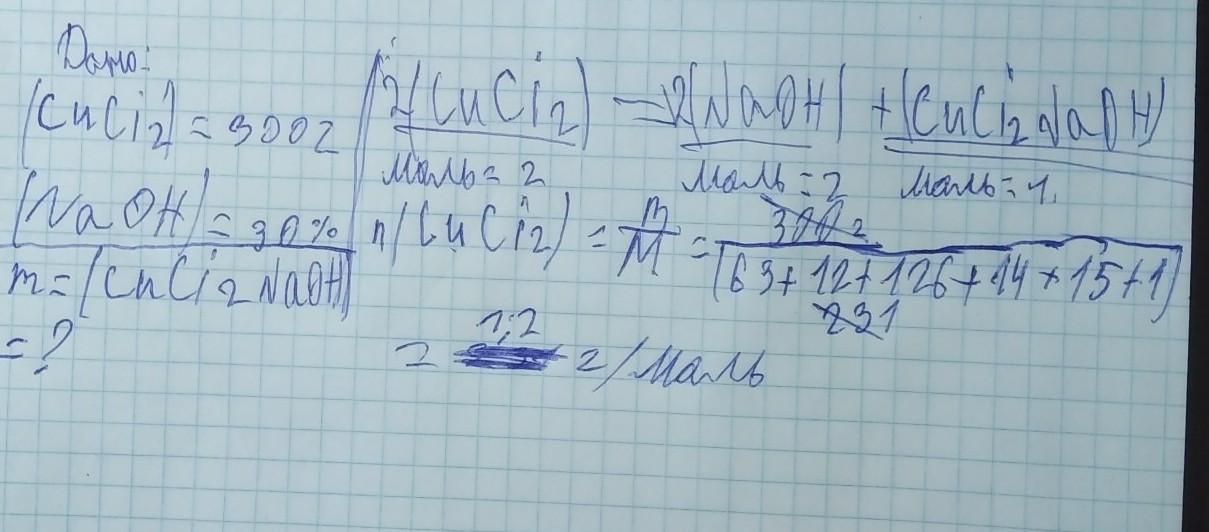 Дано:
(CuCi2) = 300г
(NaOH) = 30%
m = (CuCi2NaOH)
= ?
2(CuCi2) = 2(NaOH) + (CuCi2NaOH)
маль = 2 маль = 2 маль = 1.
n(CuCi2) = m/M = 300г/(63 + 12 + 126 + 14 + 15 + 1)
231
= 1,2 г/маль